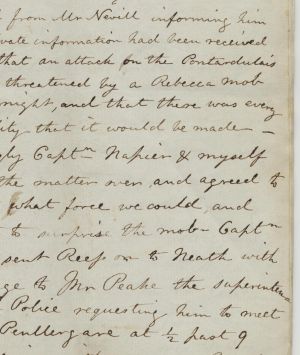 from Mr Nevill informing him
vate information had been received
that an attack on the Pontardulais
threatened by a Rebecca mob
night, and that there was every
ility that it would be made —
gly Captn Napier & myself
the matter over, and agreed to
what force we could, and
to surprise the mob - Captn
sent Rees on to Neath with
ge to Mr Peake the superinten
Police requesting him to meet
Penllergare at ½ past 9